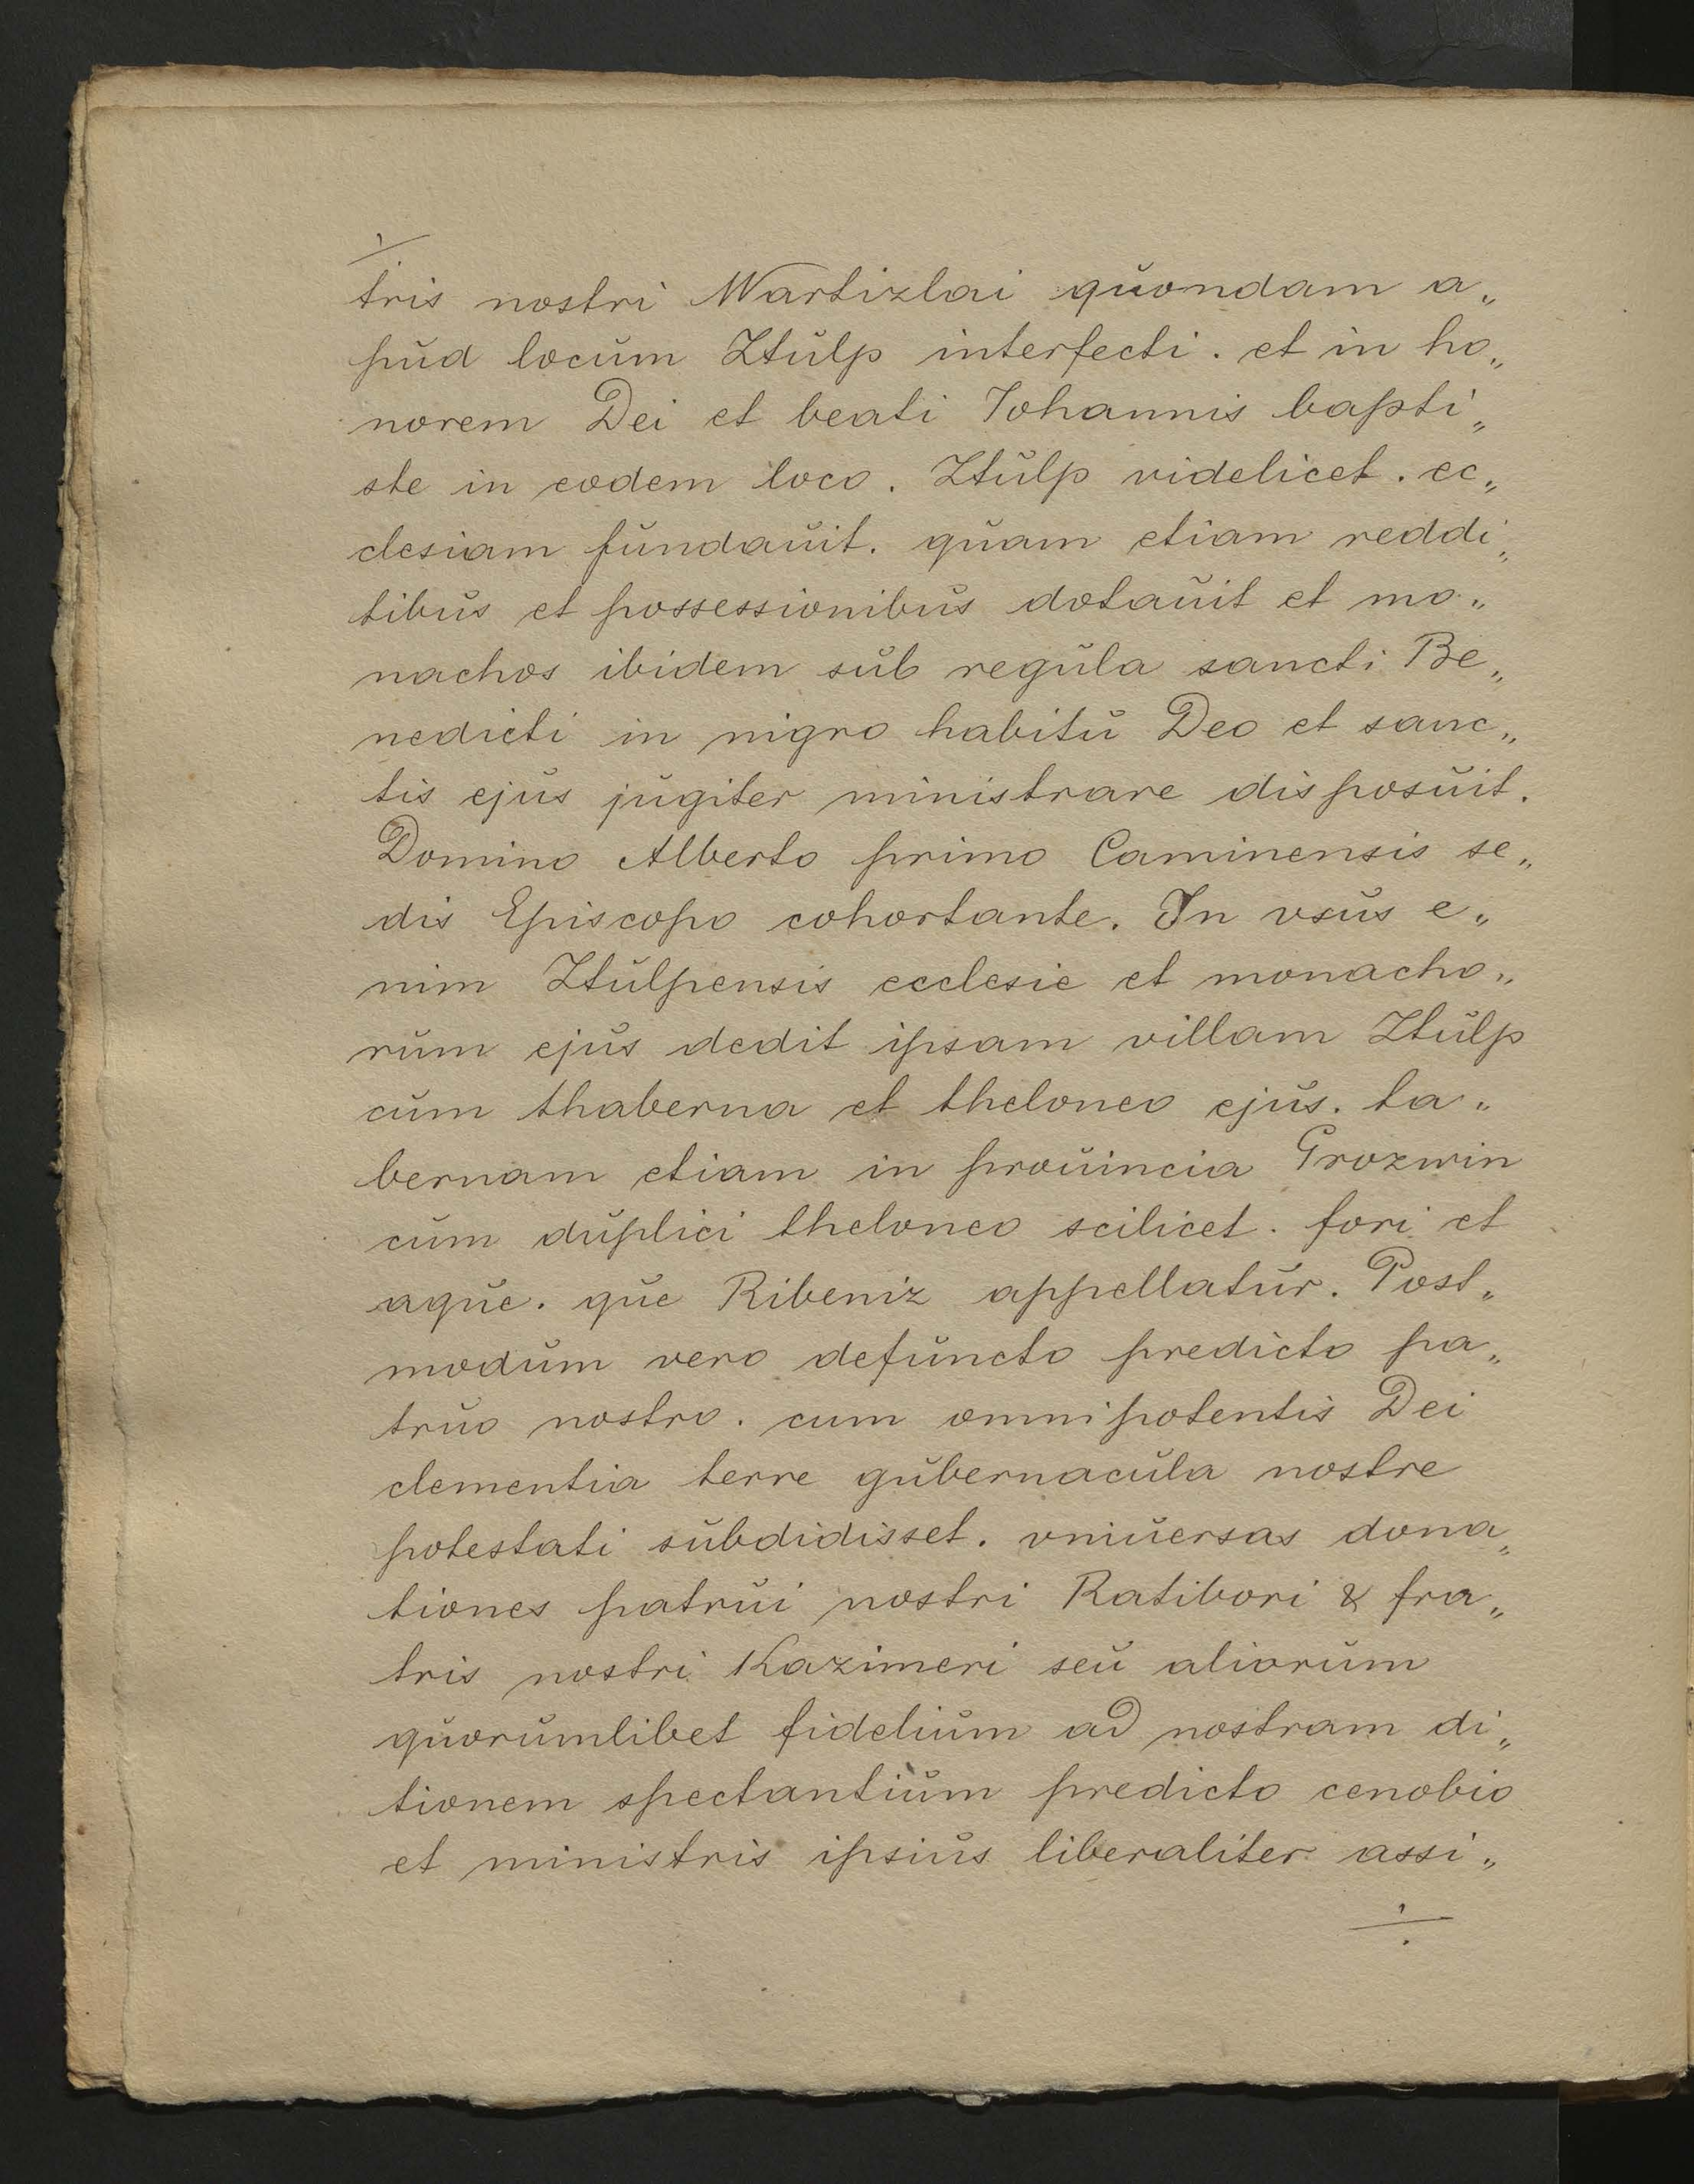 tris nostri Wartizlai quondam a„
pud locum Ztulp interfecti . et in ho„
norem Dei et beati Iohannis bapti„
ste in eodem loco . Ztulp videlicet . ec„
clesiam fundauit . quam etiam reddi„
tibus et possessionibus dotauit et mo„
nachos ibidem sub regula sancti Be„
nedicti in nigro habitu Deo et sanc„
tis ejus jugiter ministrare disposuit .
Domino Alberto primo Caminensis se„
dis Episcopo cohortante . In vsus e„
nim Ztulpensis ecclesie et monacho„
rum ejus dedit ipsam villam Ztulp
cum thaberna et theloneo ejus . ta„
bernam etiam in prouincia Grozwin
cum duplici theloneo scilicet . fori et
aque . que Ribeniz appellatur . Post„
modum vero defuncto predicto pa„
truo nostro . cum omnipotentis Dei
clementia terre gubernacula nostre
potestati subdidisset . vniuersas dona„
tiones patrui nostri Ratibori & fra„
tris nostri Kazimeri seu aliorum
quorumlibet fidelium ad nostram di„
tionem spectantium predicto cenobio
et ministris ipsius liberaliter assi„